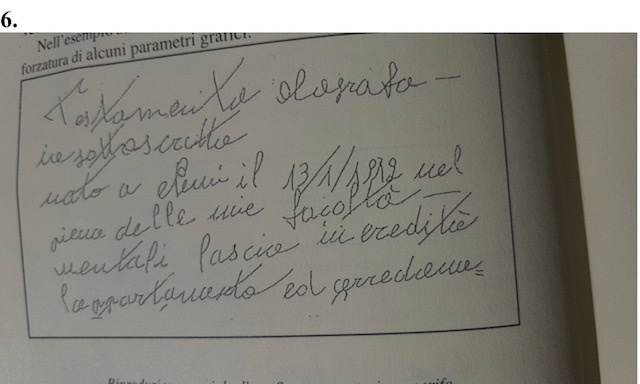 6.
Nell'esempio
forzatura di alcuni parametri grafici.
Testamento olografo –
io sottoscritto
nato a il 13/1/1912 nel
pieno delle mie facoltà –
mentali lascio in eredità
l'appartamento ed arredame=